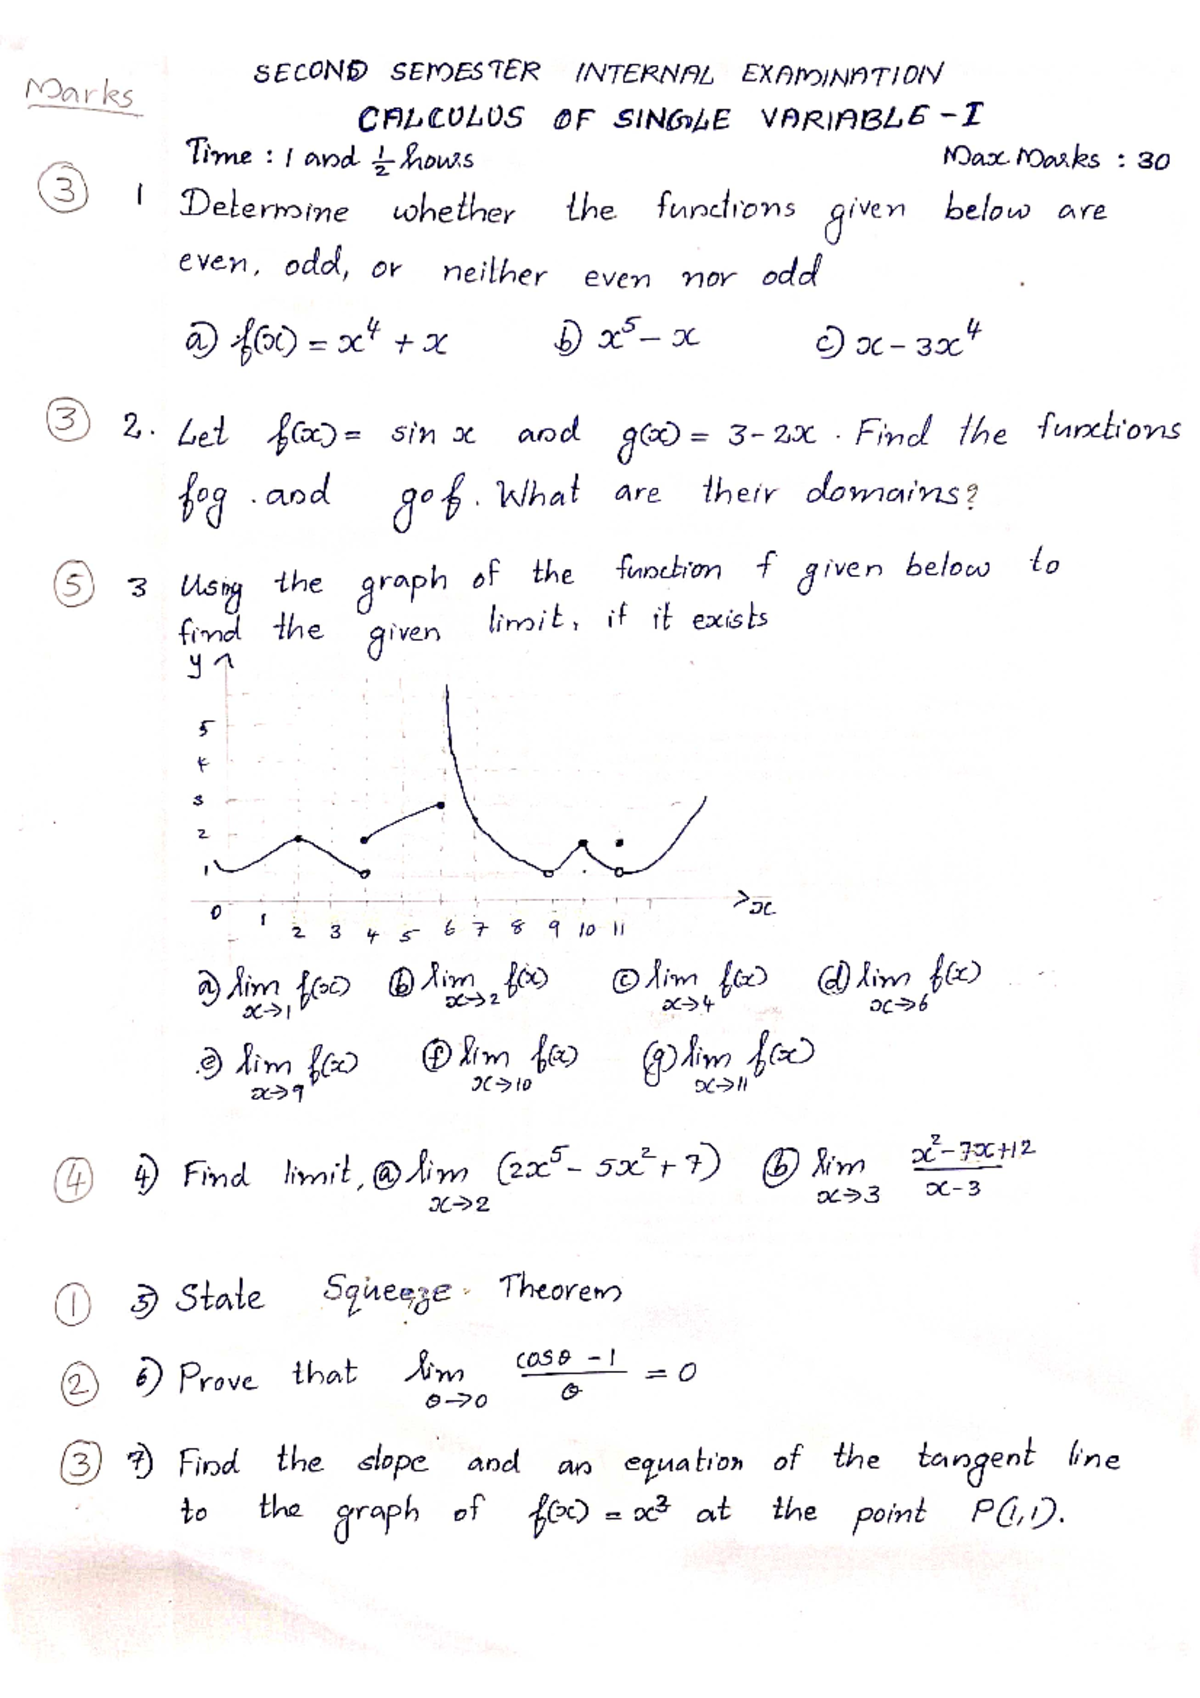 Marks
SECOND SEMESTER INTERNAL EXAMINATION
CALCULUS OF SINGLE VARIABLE - I
Time : 1 and 1/2 hours Max Marks : 30
③ 1 Determine whether the functions given below are
even, odd, or neither even nor odd
a) f(x) = x⁴ + x b) x⁵ - x c) x - 3x⁴
③ 2. Let f(x) = sin x and g(x) = 3 - 2x . Find the functions
fog . and gof . What are their domains?
⑤ 3 Using the graph of the function f given below to
find the given limit, if it exists
y
5
4
3
2
1
0 1 2 3 4 5 6 7 8 9 10 11 >x
a) lim x→1 f(x) b) lim x→2 f(x) c) lim x→4 f(x) (d) lim x→6 f(x)
e) lim x→9 f(x) f) lim x→10 f(x) (g) lim x→11 f(x)
④ 4) Find limit, a) lim x→2 (2x⁵ - 5x² + 7) b) lim x→3 (x² - 7x + 12)/(x - 3)
① 5) State Squeeze Theorem
② 6) Prove that lim θ→0 (cos θ - 1)/θ = 0
③ 7) Find the slope and an equation of the tangent line
to the graph of f(x) = at the point P(1,1).